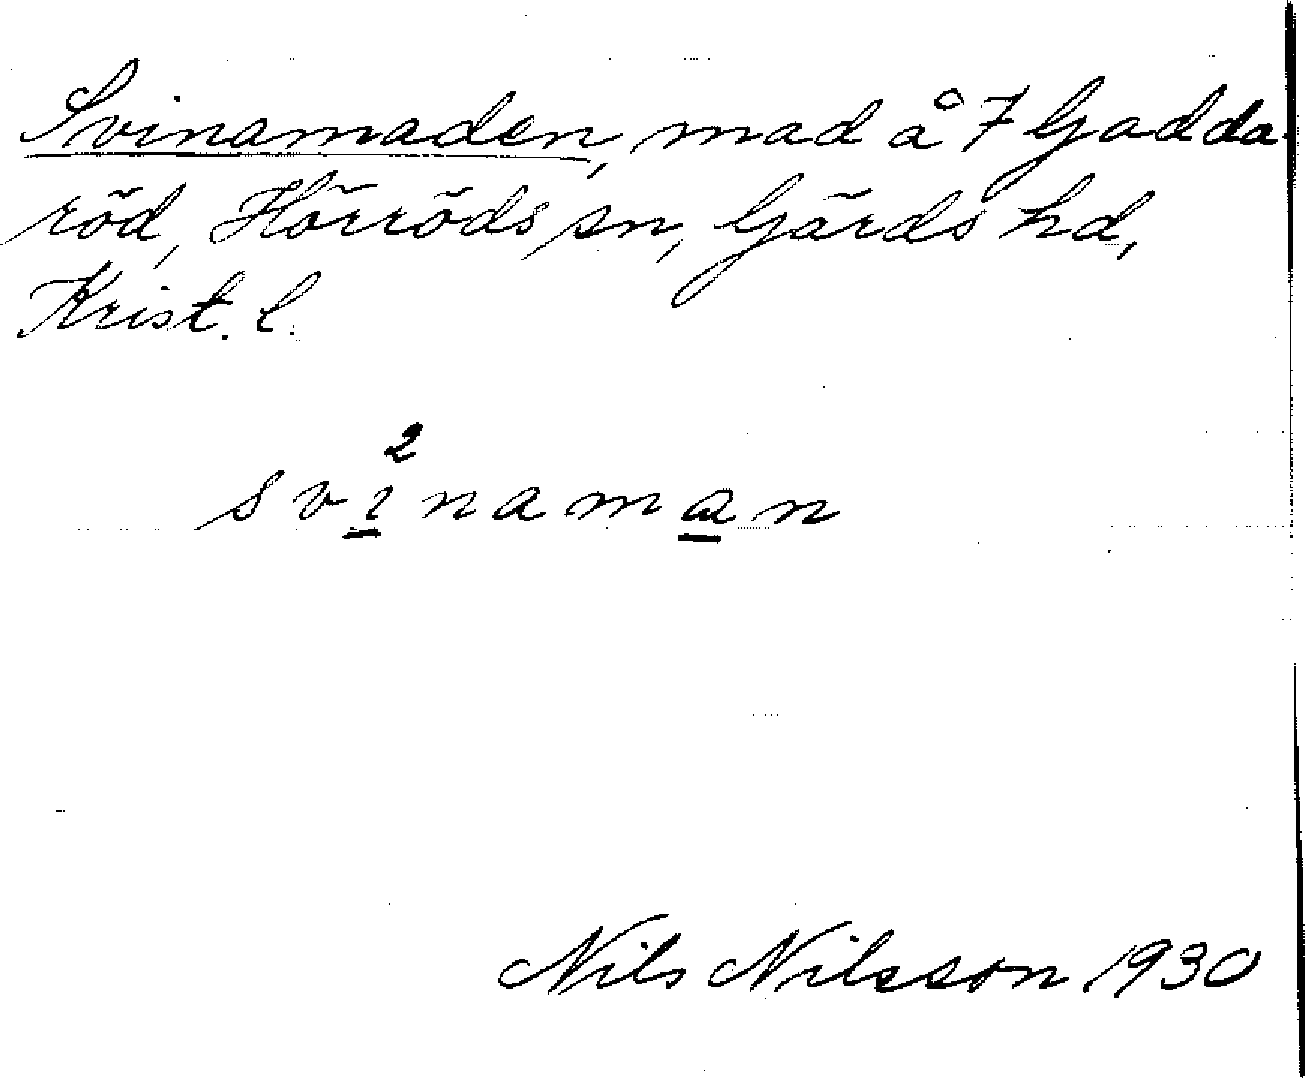 Svinamaden, mad å 7 Gadda-
röd, Hörröds sn, Gärds hd,
Krist. l.
svi²naman
Nils Nilsson 1930